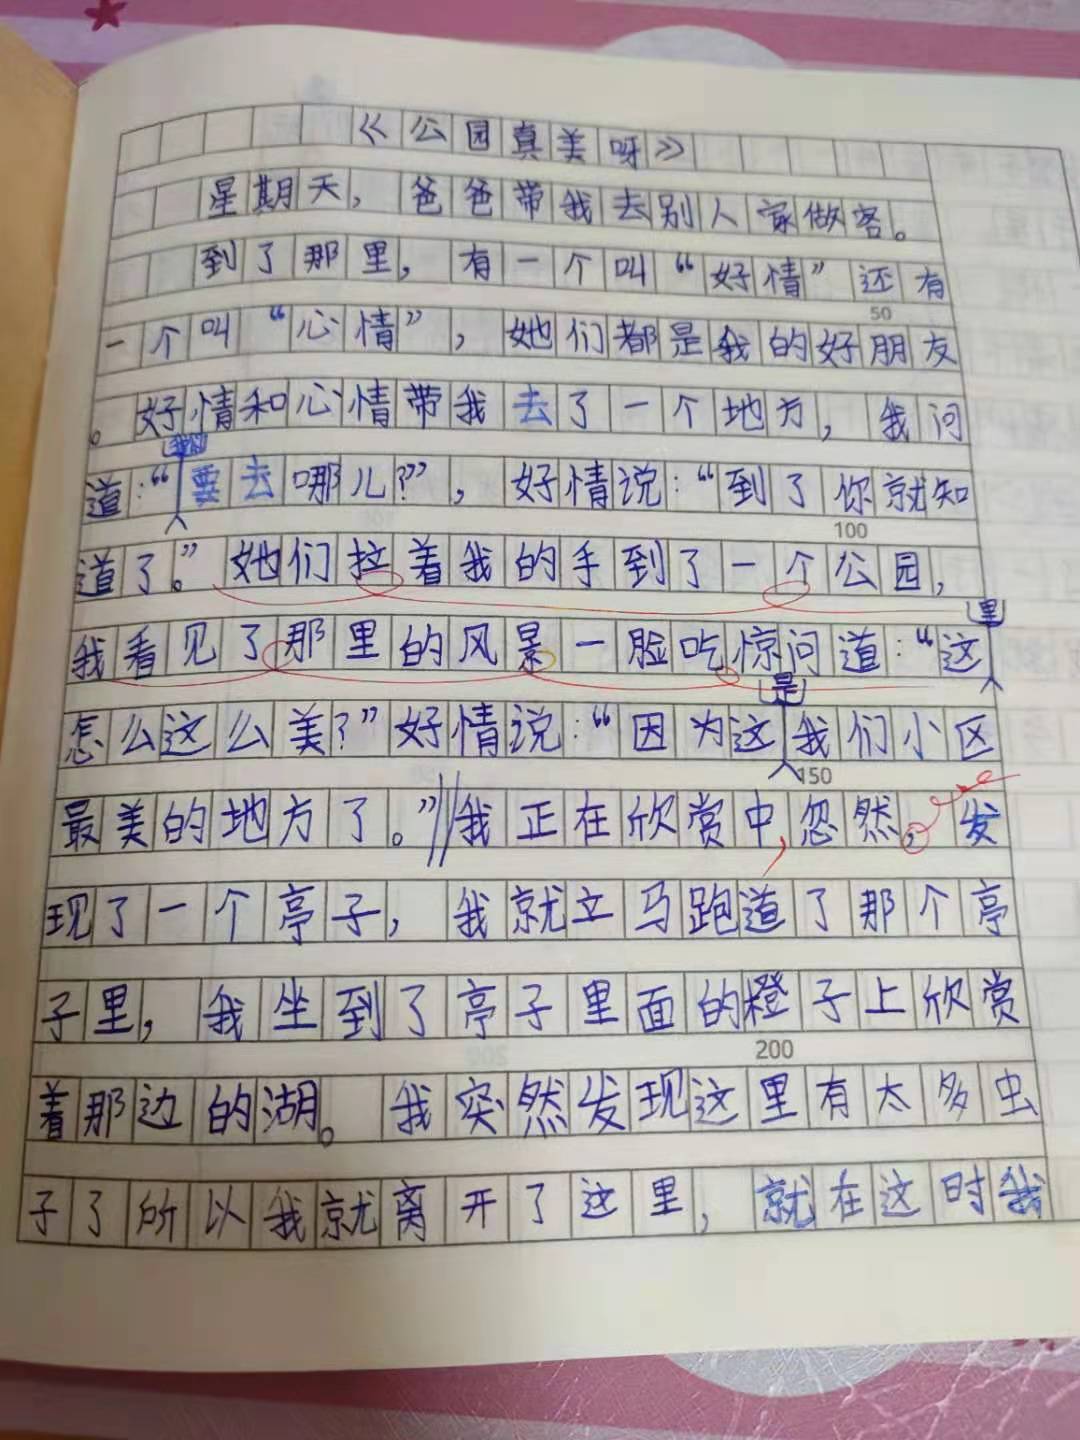 《公园真美呀》
星期天，爸爸带我去别人家做客。
到了那里，有一个叫“好情”还有
50
一个叫“心情”，她们都是我的好朋友
。好情和心情带我去了一个地方，我问
道：“要去哪儿？”，好情说：“到了你就知
100
道了。”她们拉着我的手到了一个公园，
里
我看见了那里的风景一脸吃惊问道：“这
是
怎么这么美？”好情说：“因为这我们小区
150
最美的地方了。”//我正在欣赏中，忽然，发
现了一个亭子，我就立马跑道了那个亭
子里，我坐到了亭子里面的橙子上欣赏
200
着那边的湖。我突然发现这里有太多虫
子了所以我就离开了这里，就在这时我